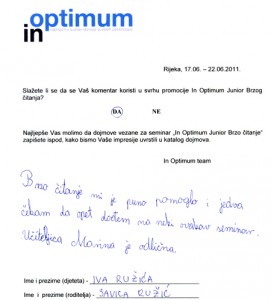 optimum
in
Rijeka, 17.06. – 22.06.2011.
Slažete li se da se Vaš komentar koristi u svrhu promocije In Optimum Junior Brzog
čitanja?
DA NE
Najljepše Vas molimo da dojmove vezane za seminar „In Optimum Junior Brzo čitanje"
zapišete ispod, kako bismo Vaše impresije uvrstili u katalog dojmova.
In Optimum team
Brzo čitanje mi je puno pomoglo i jedva
čekam da opet dođem na neki ovakav seminar.
Učiteljica Marina je odlična.
Ime i prezime (djeteta) - IVA RUŽIĆA
Ime i prezime (roditelja) - SAVICA RUŽIĆ